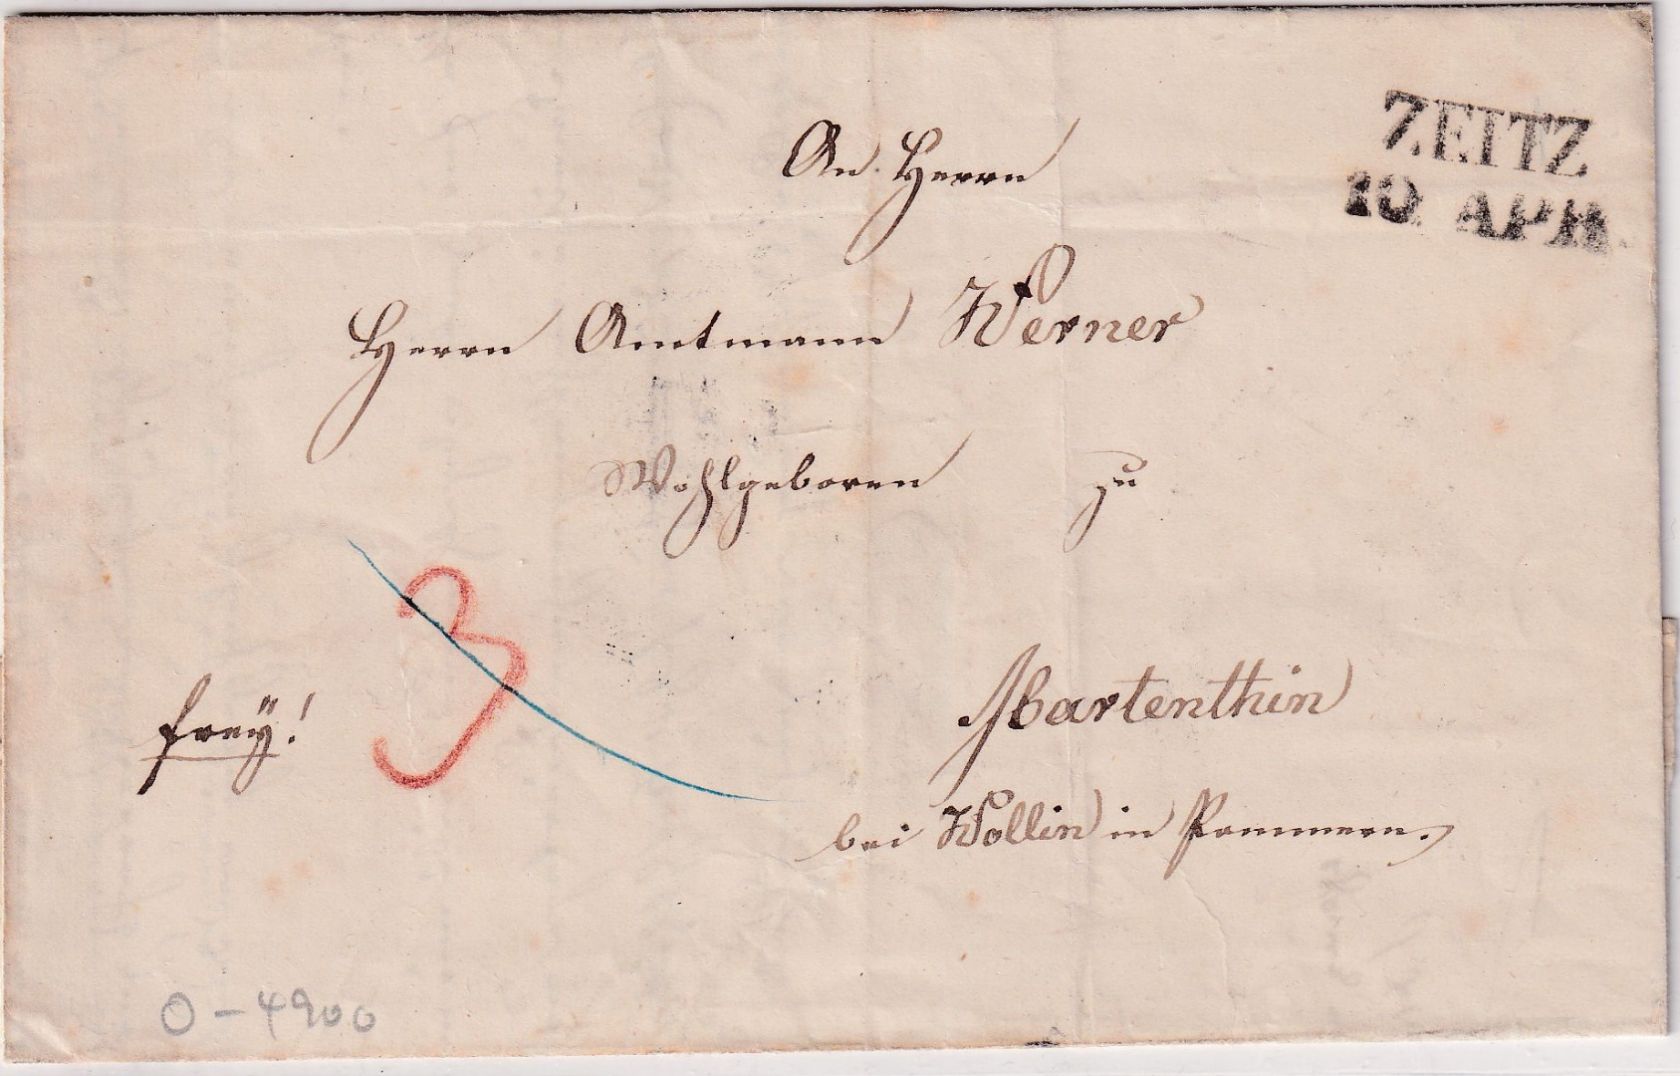 ZEITZ
10 APR
An Herrn
Herrn Amtmann Werner
Wohlgeboren zu
frey!
3
Martenthin
bei Wollin in Pommern.
O-4900